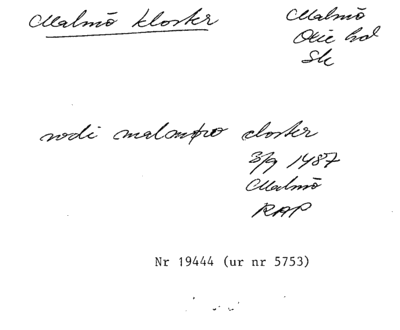 Malmö kloster
Malmö
Oxie hd
Sk
vodi malmpro closter
3/9 1487
Malmö
RAP
Nr 19444 (ur nr 5753)